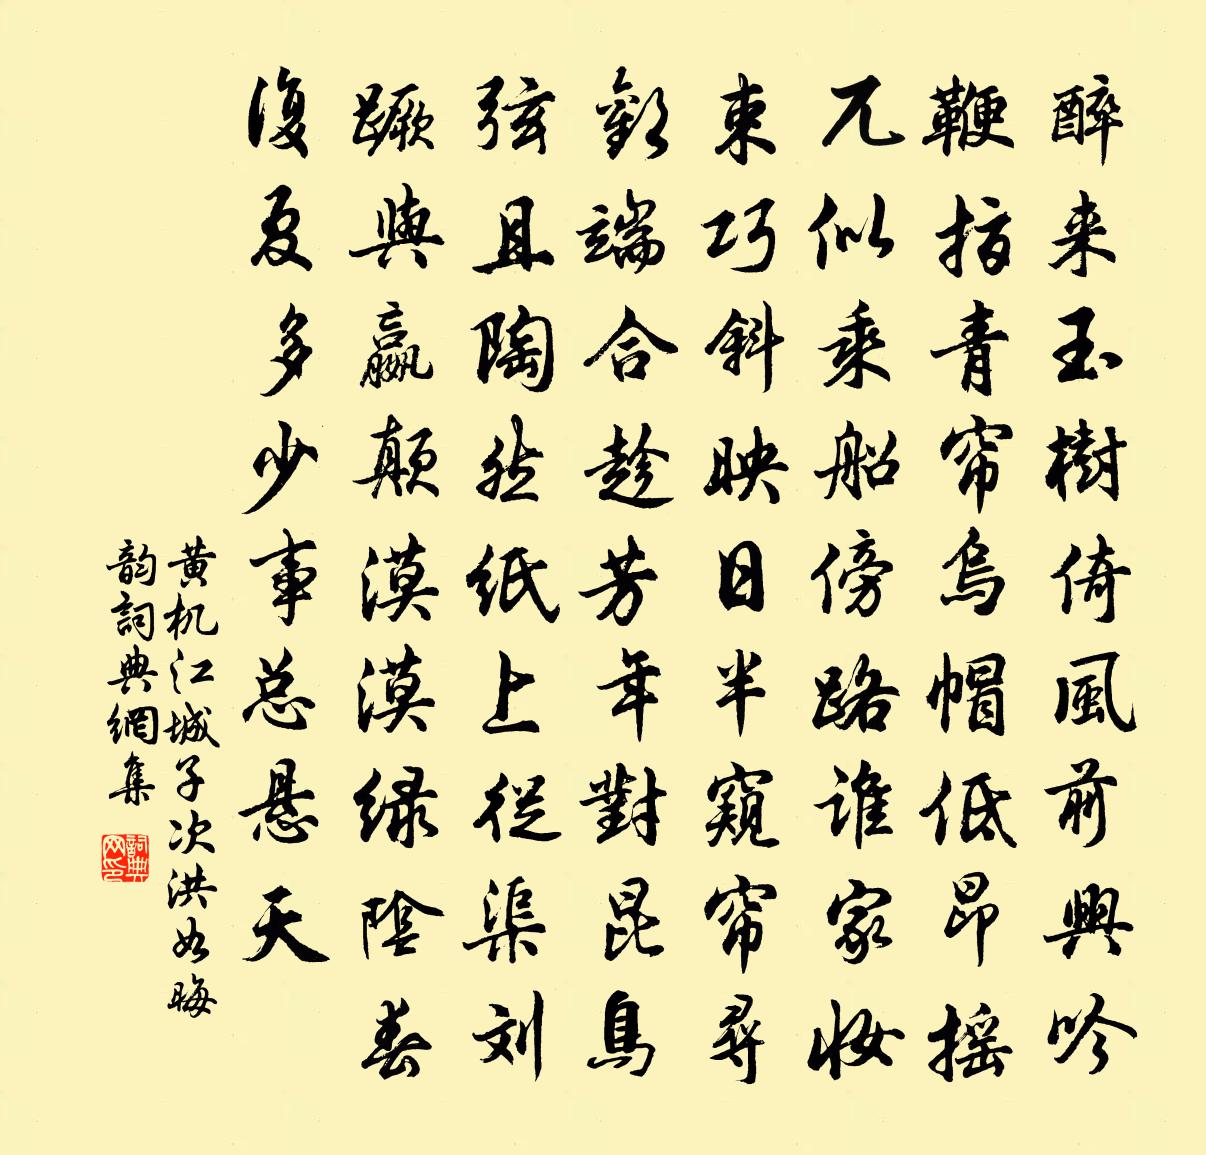 醉来玉樹倚風前興吟
鞭指青帘烏帽低昂摇
兀似乘船傍路谁家妆
束巧斜映日半窺帘尋
歡端合趁芳年對昆鳥
弦且陶然纸上從渠刘
蹶與嬴顛漠漠绿陰春
復夏多少事总悬天
黄机江城子次洪如晦
韵詞典網集
詞典网印